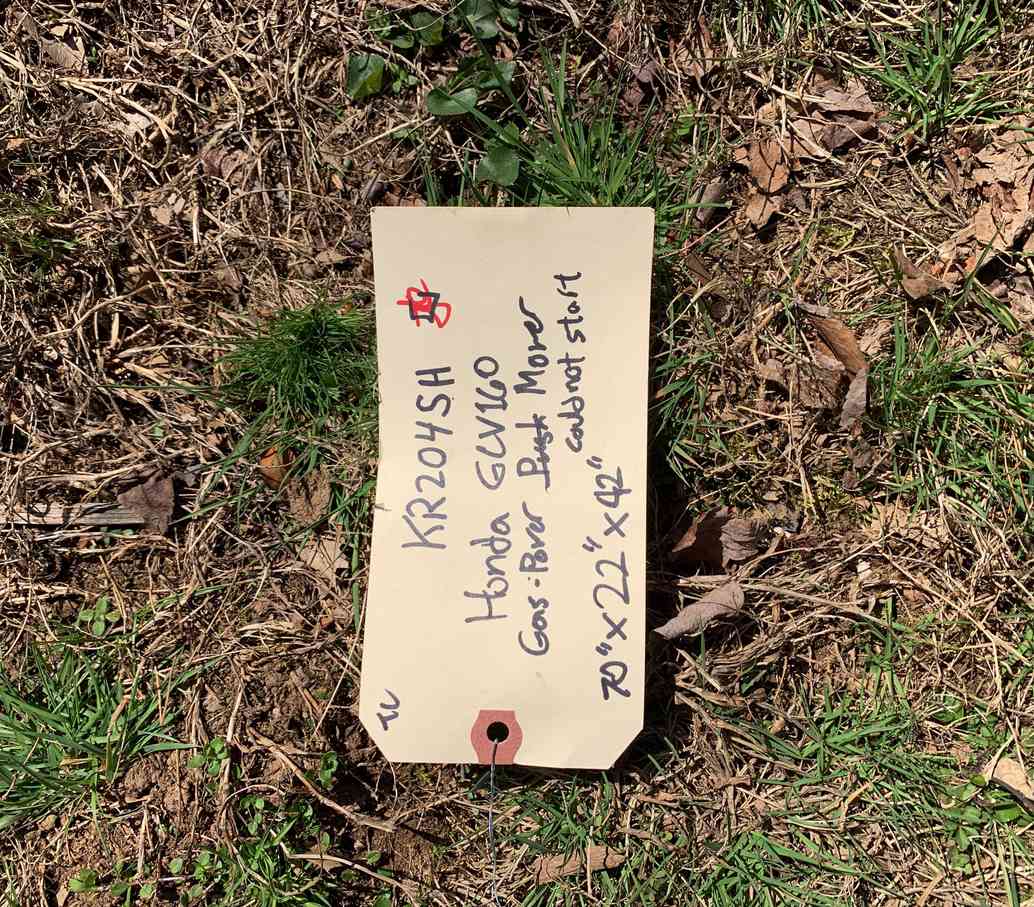 KR204SH
Honda GCV160
Gas-Power Push Mower
could not start
70" x 22" x 42"